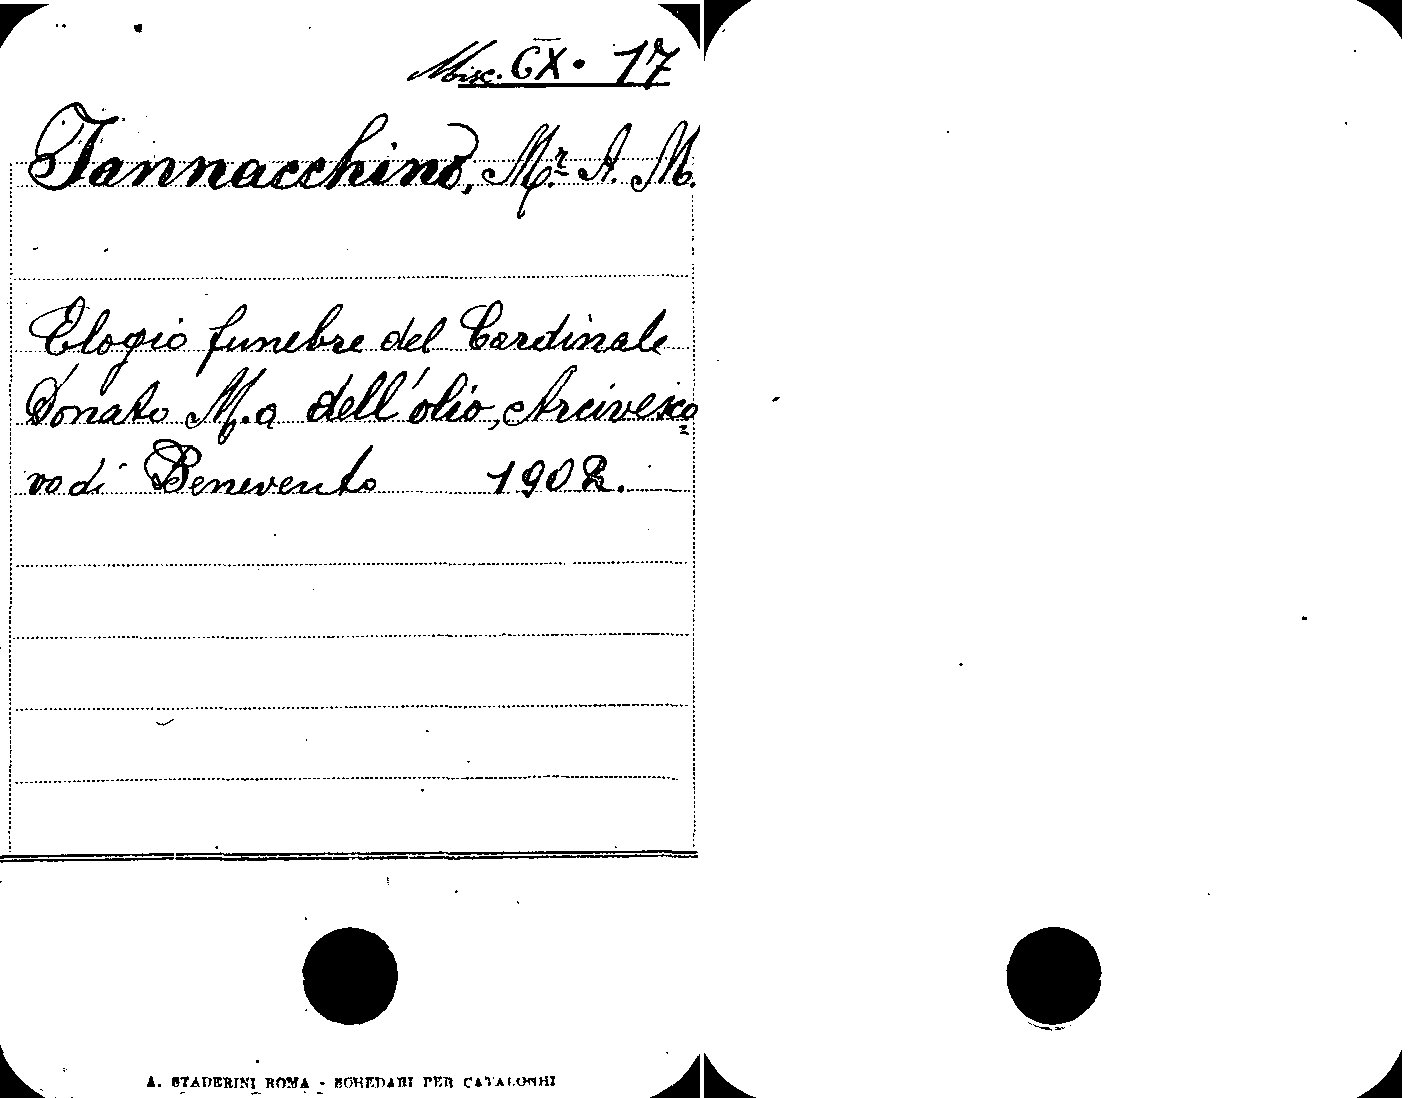 Misc. CX. 17
Iannacchino, M.r A. M.
Elogio funebre del Cardinale
Donato M.a dell'olio, Arcivesco
vo di Benevento 1902.
A. STADERINI ROMA - SCHEDARI PER CATALOGHI